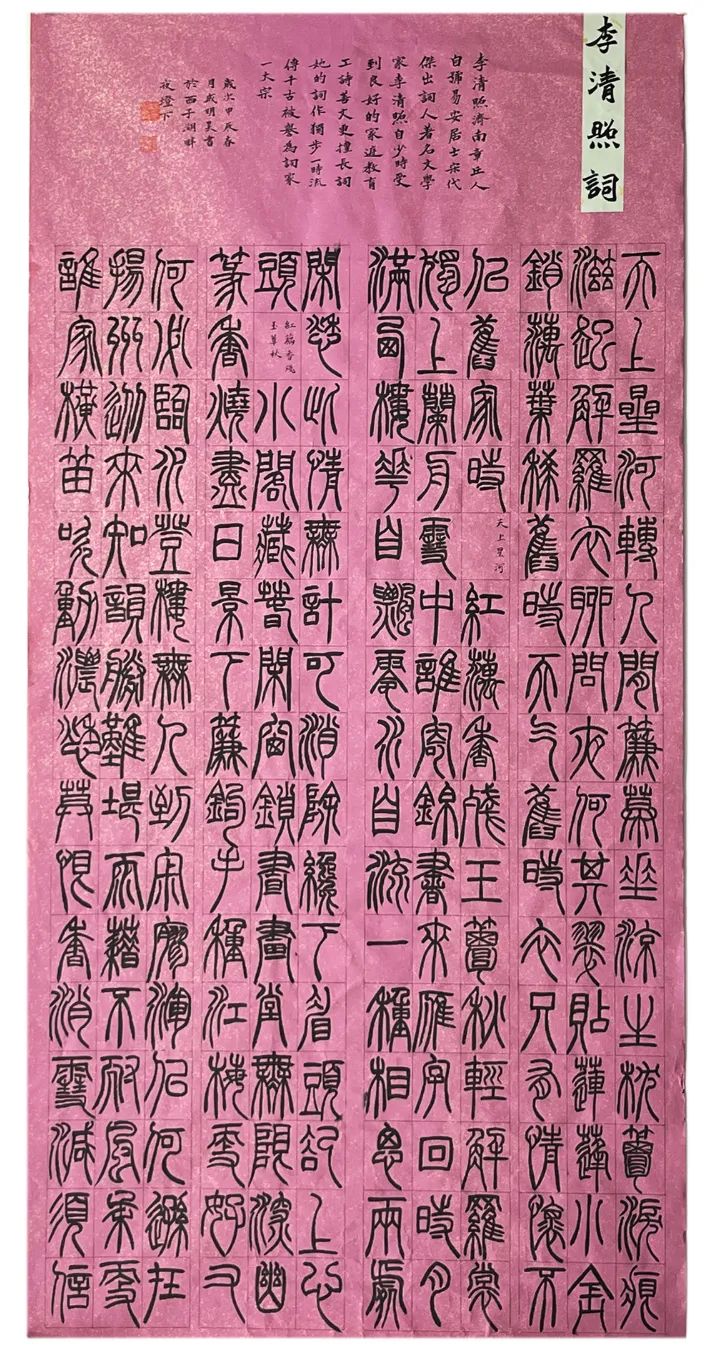 李清照詞
李清照濟南章丘人
自號易安居士宋代
傑出詞人著名文學
家李清照自少時受
到良好的家庭教育
工詩善文更擅長詞
她的詞作獨步一時流
傳千古被譽為詞家
一大宗
歲次甲辰春
月明昊書
於西子湖畔
夜燈下
天上星河轉人間簾幕垂涼生枕簟淚痕
滋起解羅衣聊問夜何其翠貼蓮蓬小金
銷藕葉稀舊時天氣舊時衣只有情懷不
似舊家時
天上星河
紅藕香殘玉簟秋輕解羅裳
獨上蘭舟雲中誰寄錦書來雁字回時月
滿西樓花自飄零水自流一種相思兩處
閑愁此情無計可消除纔下眉頭卻上心
頭
紅藕香殘
玉簟秋
小閣藏春閑窗鎖晝畫堂無限深幽
篆香燒盡日景下簾鉤手種江梅更好又
何必臨水登樓無人到寂寥渾似何遜在
揚州從來知韻勝難堪雨藉不耐風柔更
誰家橫笛吹動濃愁莫恨香消雪減須信